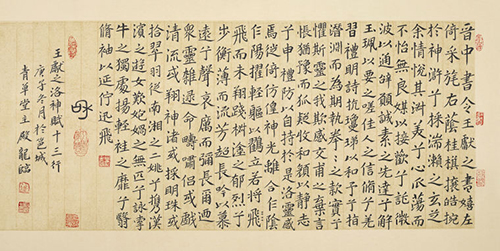 晉中書令王獻之書嬉左
倚采旄右蔭桂旗攘皓捥
於神滸兮采湍瀨之玄芝
余情悅其淑美兮心蕩而
不怡無良媒以接歡兮託微
波以通辭願誠素之先達兮解
玉珮以要之嗟佳人之信脩兮羌
習禮明詩抗瓊珶以和予兮指
潛淵而為期執拳之款實兮
懼斯靈之我欺感交甫之棄言
悵猶豫而狐疑收和顏以靜志
兮申禮防以自持於是洛靈感
焉徙倚仿偟神光離合乍陰
乍陽擢輕軀以鶴立若將飛
飛而未翔踐椒塗之郁烈兮
步衡薄而流芳超長吟以慕
遠兮聲哀厲而彌長爾乃
眾靈雜遝命疇嘯侶或戲
清流或翔神渚或采明珠或
拾翠羽從南湘之二姚兮攜漢
濱之遊女歎匏媧之無匹兮詠牽
牛之獨處揚輕袿之靡兮翳
脩袖以延佇迅飛
王獻之洛神賦十三行
庚子冬月於邕城
青草堂主殿龍臨